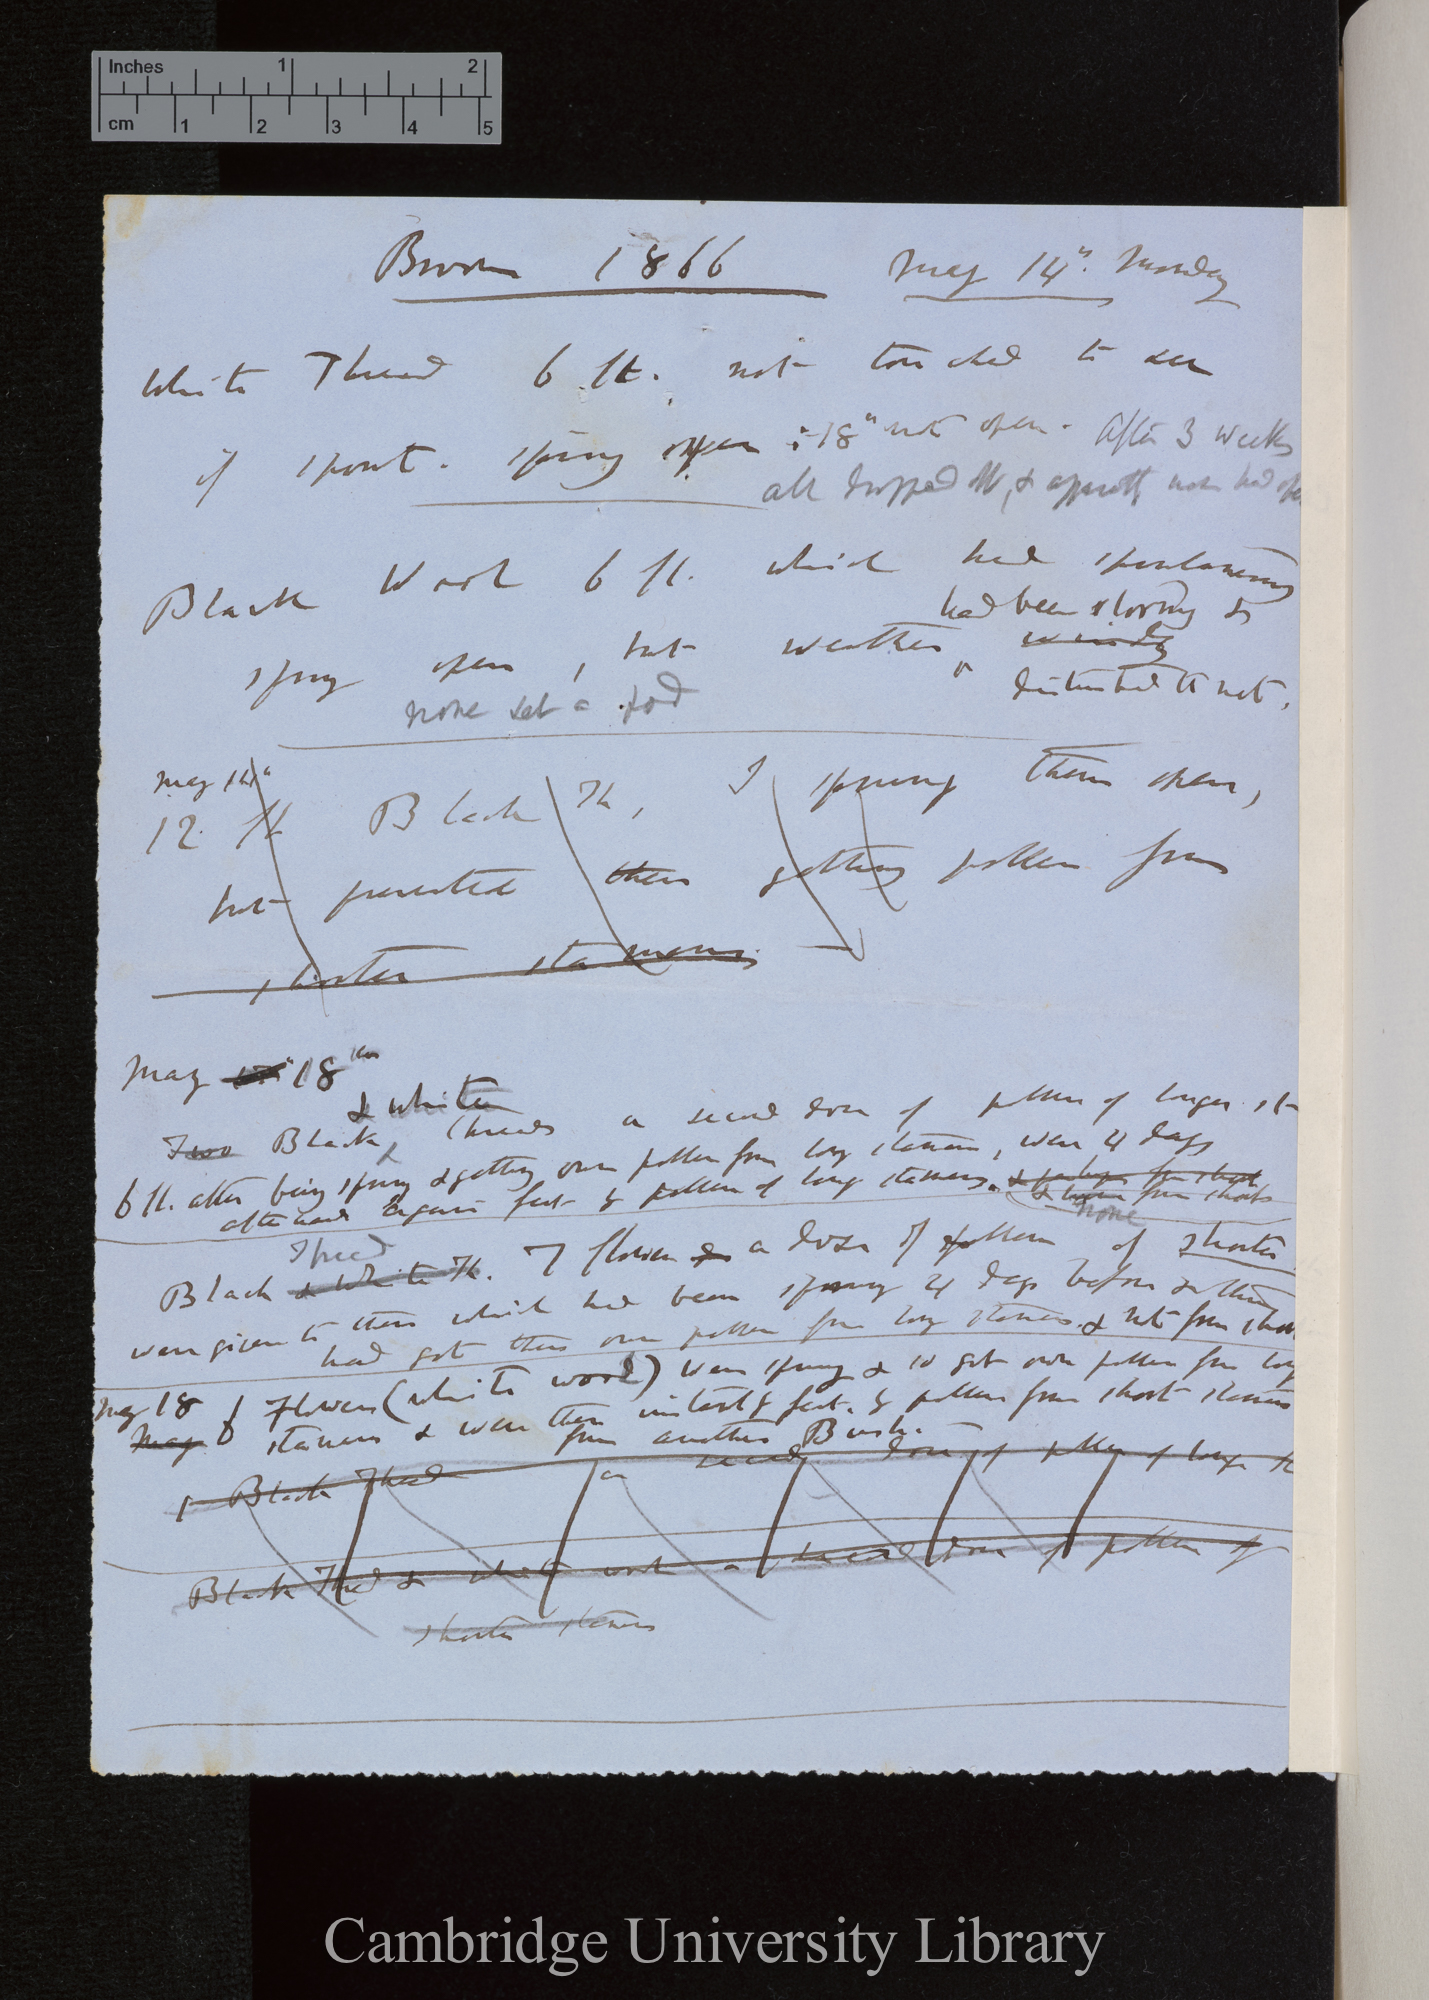 Inches 1 2
cm 1 2 3 4 5
Broom 1866 May 14". Monday
White Thread 6 fl. not touched to see
if spont. spring open :-18" not open. After 3 weeks
all dropped off, & apparently none had open
Black Wool 6 fl. which had spontaneously
had been stormy &
sprung open, but weather windy
disturbed it not.
none set a pod
May 14"
12 fl Black Th, I sprung them open,
but prevented them getting pollen from
shorter stamens.
May 18th
& white
Two Black threads a second dose of pollen of longer st
6 fl. after being sprung & getting own pollen from long stamens, were 4 days
afterward again fert. by pollen of long stamens. & perhaps from short
& none from shorts
none
Thread
Black & White Th. 7 flowers a dose of pollen of shorter
were given to them which had been sprung 4 days before & then
had got their own pollen from long stamens. & not from short
May 18 6 Flowers (white wool) were sprung & so got own pollen from long
May stamens & were then instantly fert. by pollen from short stamens
from another Bush.
Black Thread a second dose of pollen of longer st
Black Thread & white wool a second dose of pollen of
shorter stamens
Cambridge University Library